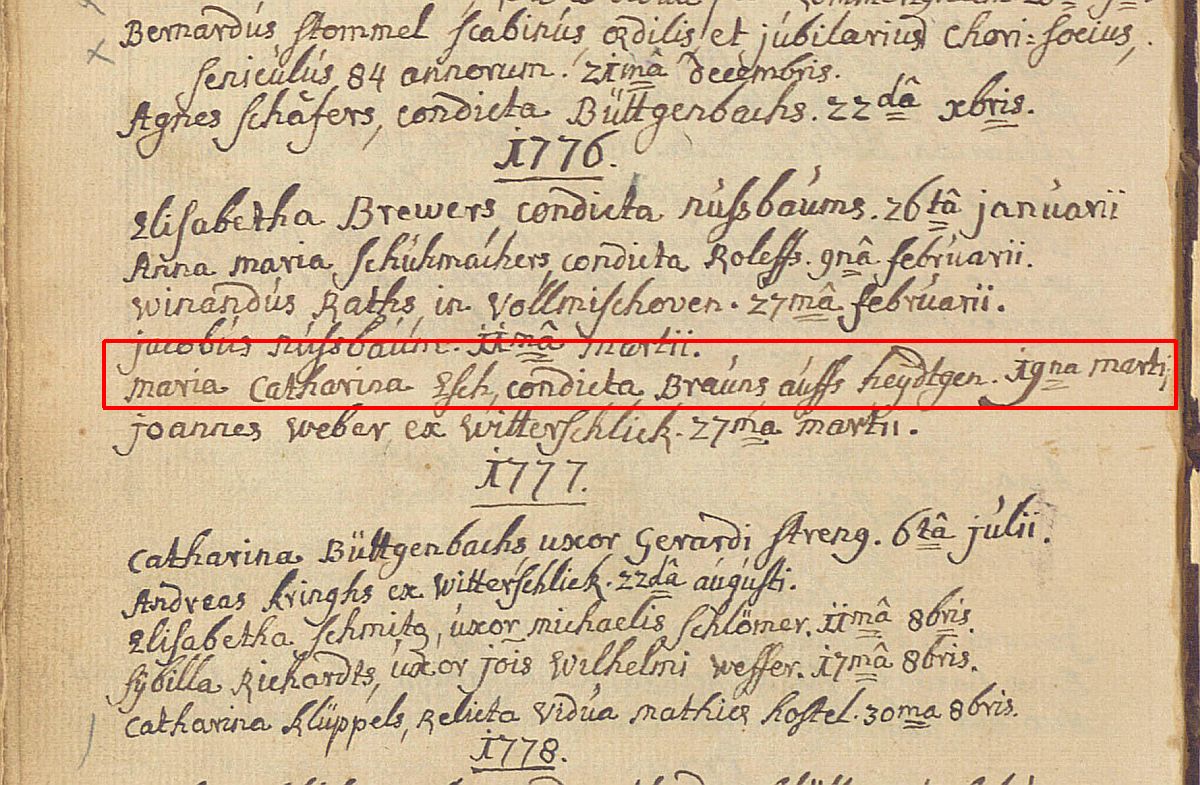 Bernardús stommel scabinús, ædilis, et júbilariús Chori=socius,
seniculús 84 annorum. 21mâ decembris.
Agnes schäfers, condicta Büttgenbachs. 22dâ xbris.
1776.
Elisabetha Brewers condicta nússbaúms. 26tâ janúarii
Anna maria schúhmachers, condicta Roleffs. 9nâ februarii.
winandús Raths, in Vollmischoven. 27mâ februarii.
jacobús nússbaúm. 11mâ martii.
maria Catharina Esch, condicta Braúns aúffs heÿdtgen. 19na martij
joannes weber, ex witterschlick. 27ma martii.
1777.
Catharina Büttgenbachs, uxor Gerardi streng. 6tâ júlii.
Andreas kringhs ex witterschliek. 22dâ aúgústi.
Elisabetha schmitz, úxor michaelis schlömer. 11mâ 8bris.
sÿbilla Richardts, úxor jois wilhelmi wesser. 17mâ 8bris.
Catharina klüppels, Relicta vidúa mathiæ hostel. 30ma 8bris.
1778.